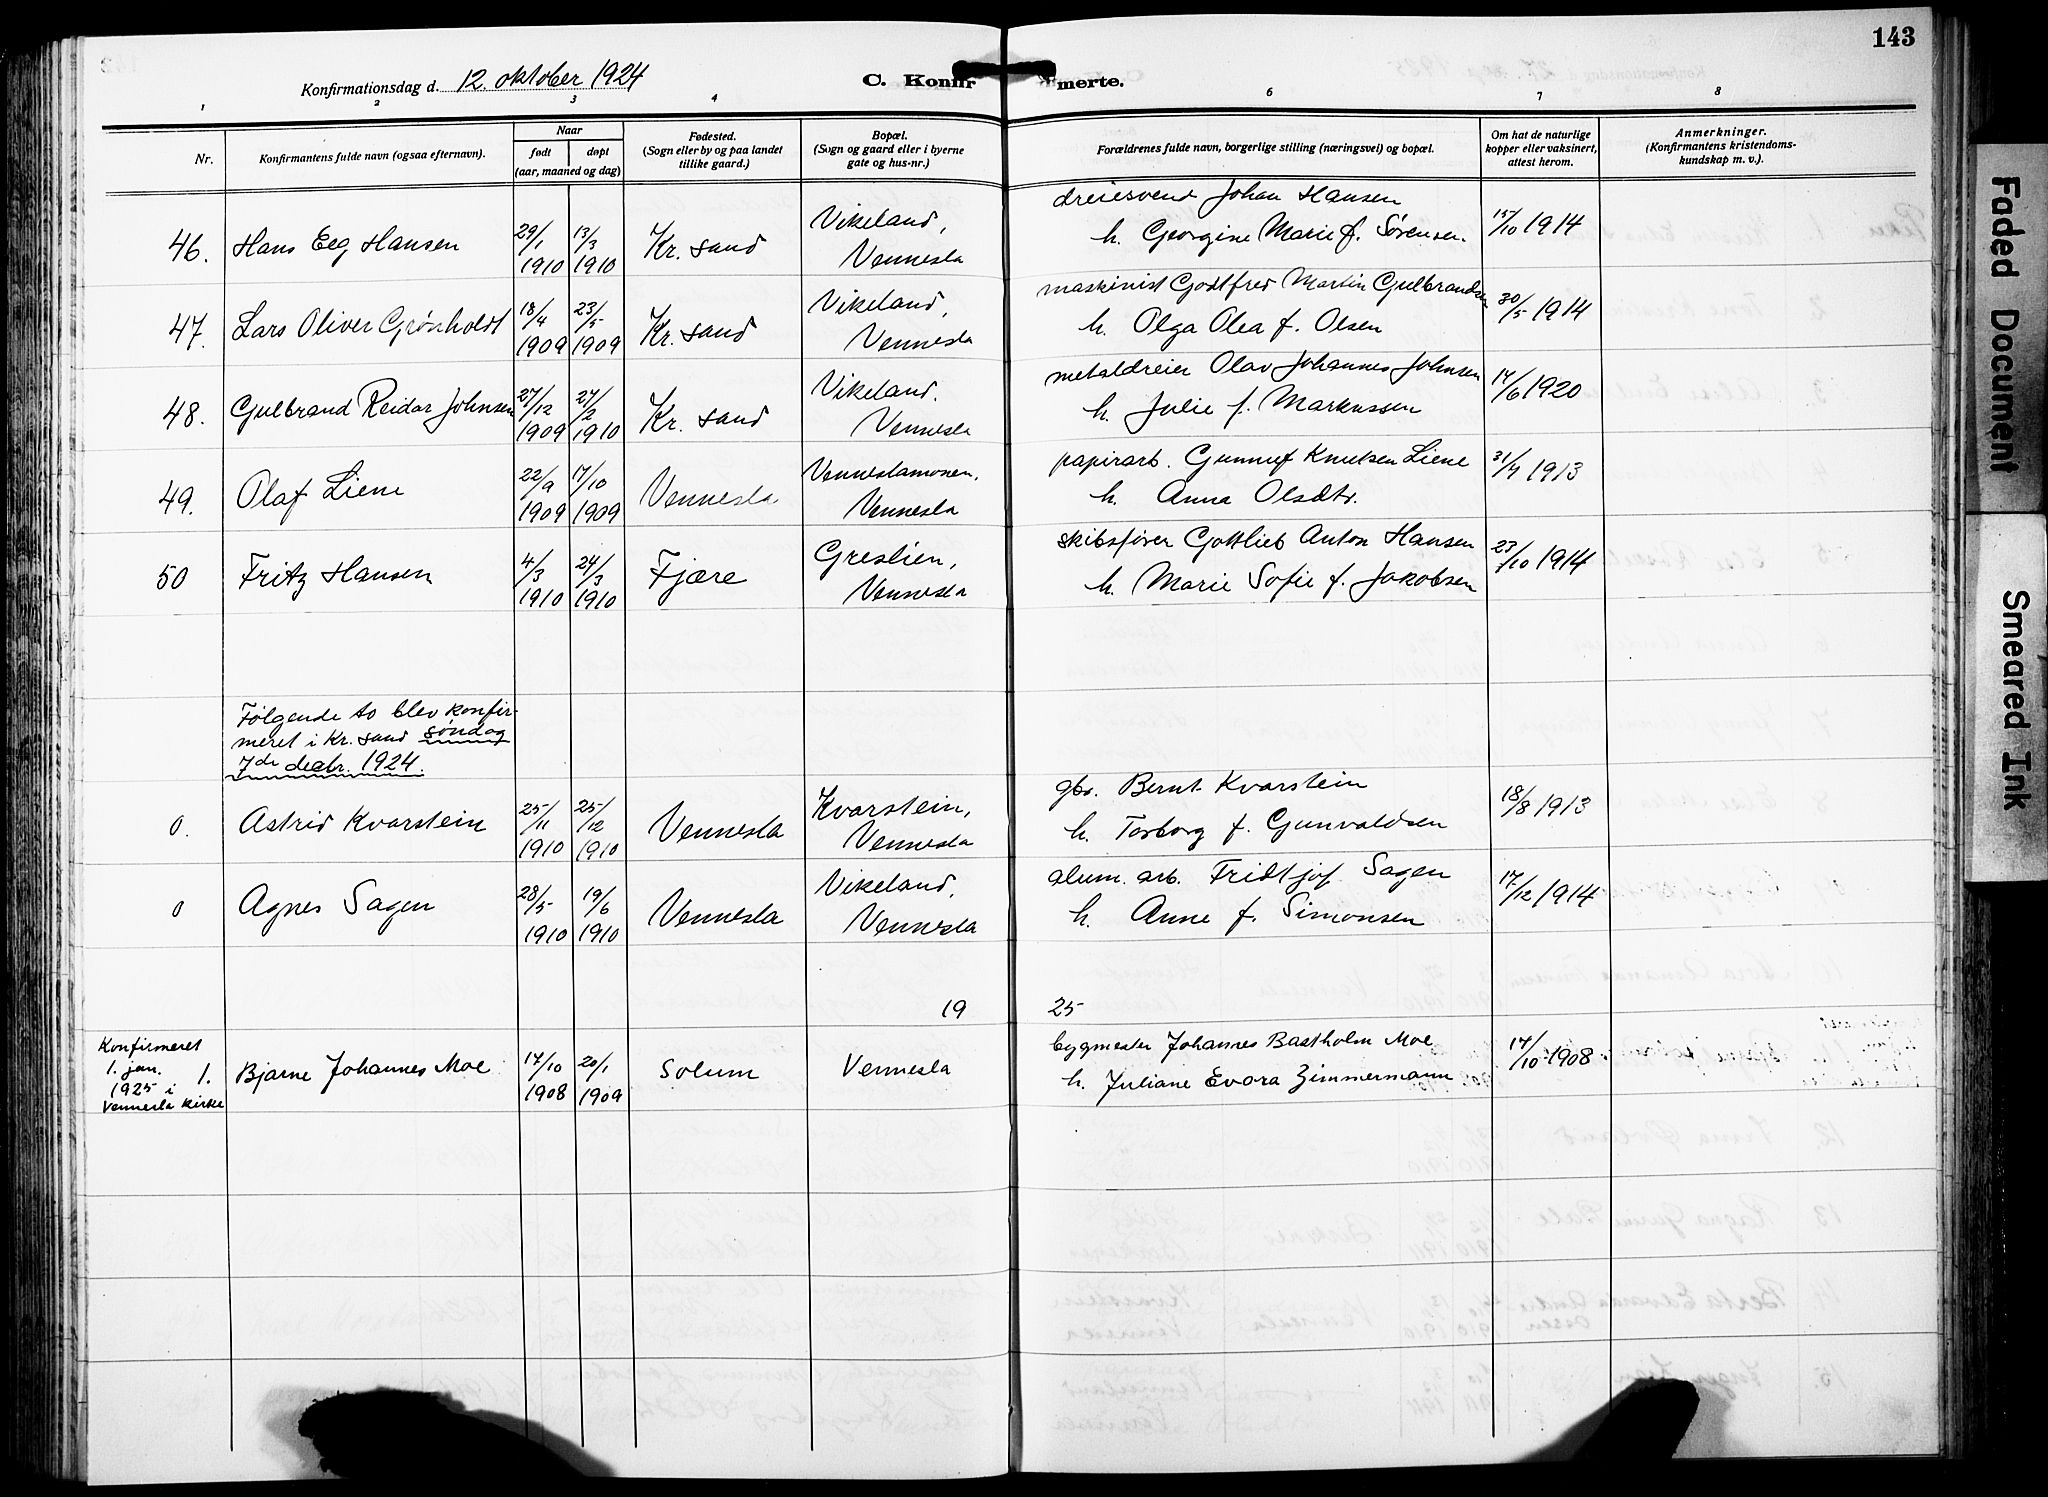 143
Konfirmationsdag d. 12. oktober 1924
C. Konfir merte.
1 2 3 4 6 7 8
Nr.
Konfirmantens fulde navn (ogsaa efternavn).
Naar
født døpt
(aar, maaned og dag)
Fødested.
(Sogn eller by og paa landet
tillike gaard.)
Bopæl.
(Sogn og gaard eller i byerne
gate og hus-nr.)
Forældrenes fulde navn, borgerlige stilling (næringsvei) og bopæl.
Om hat de naturlige
kopper eller vaksinert,
attest herom.
Anmerkninger.
(Konfirmantens kristendoms-
kundskap m. v.).
46. Hans Eeg Hansen 29/1 1910 13/3 1910 Kr. sand Vikeland, Vennesla
dreiesvend Johan Hansen
h. Georgine Marie f. Sørensen. 15/10 1914
47. Lars Oliver Grønholdt 18/4 1909 23/5 1909 Kr. sand Vikeland, Vennesla
maskinist Godtfred Martin Gulbrandsen
h. Olga Olea f. Olsen 30/5 1914
48. Gulbrand Reidar Johnsen 27/12 1909 27/2 1910 Kr. sand Vikeland, Vennesla
metaldreier Olav Johannes Johnsen
h. Julie f. Markussen 17/6 1920
49. Olaf Liene 22/9 1909 17/10 1909 Vennesla Venneslamonen, Vennesla
papirarb. Gunnuf Knutsen Liene
h. Anna Olsdtr. 31/7 1913
50 Fritz Hansen 4/3 1910 24/3 1910 Fjære Greslien, Vennesla
skibsfører Gottlieb Anton Hansen
h. Marie Sofie f. Jakobsen 23/10 1914
Følgende to blev konfir-
meret i Kr. sand søndag
7de decbr. 1924.
0. Astrid Kvarstein 25/11 1910 25/12 1910 Vennesla Kvarstein, Vennesla
gbr. Bernt Kvarstein
h. Torborg f. Gunvaldsen 18/8 1913
0 Agnes Sagen 28/5 1910 19/6 1910 Vennesla Vikeland, Vennesla
alum. arb. Fridtjof Sagen
h. Anne f. Simonsen 17/12 1914
19 25
Konfirmeret
1. jan.
1925 i
Vennesla kirke
1. Bjarne Johannes Moe 17/10 1908 20/1 1909 Solum Vennesla
bygmester Johannes Bastholm Moe
h. Juliane Evora Zimmermann 17/10 1908
Faded Document
Smeared Ink